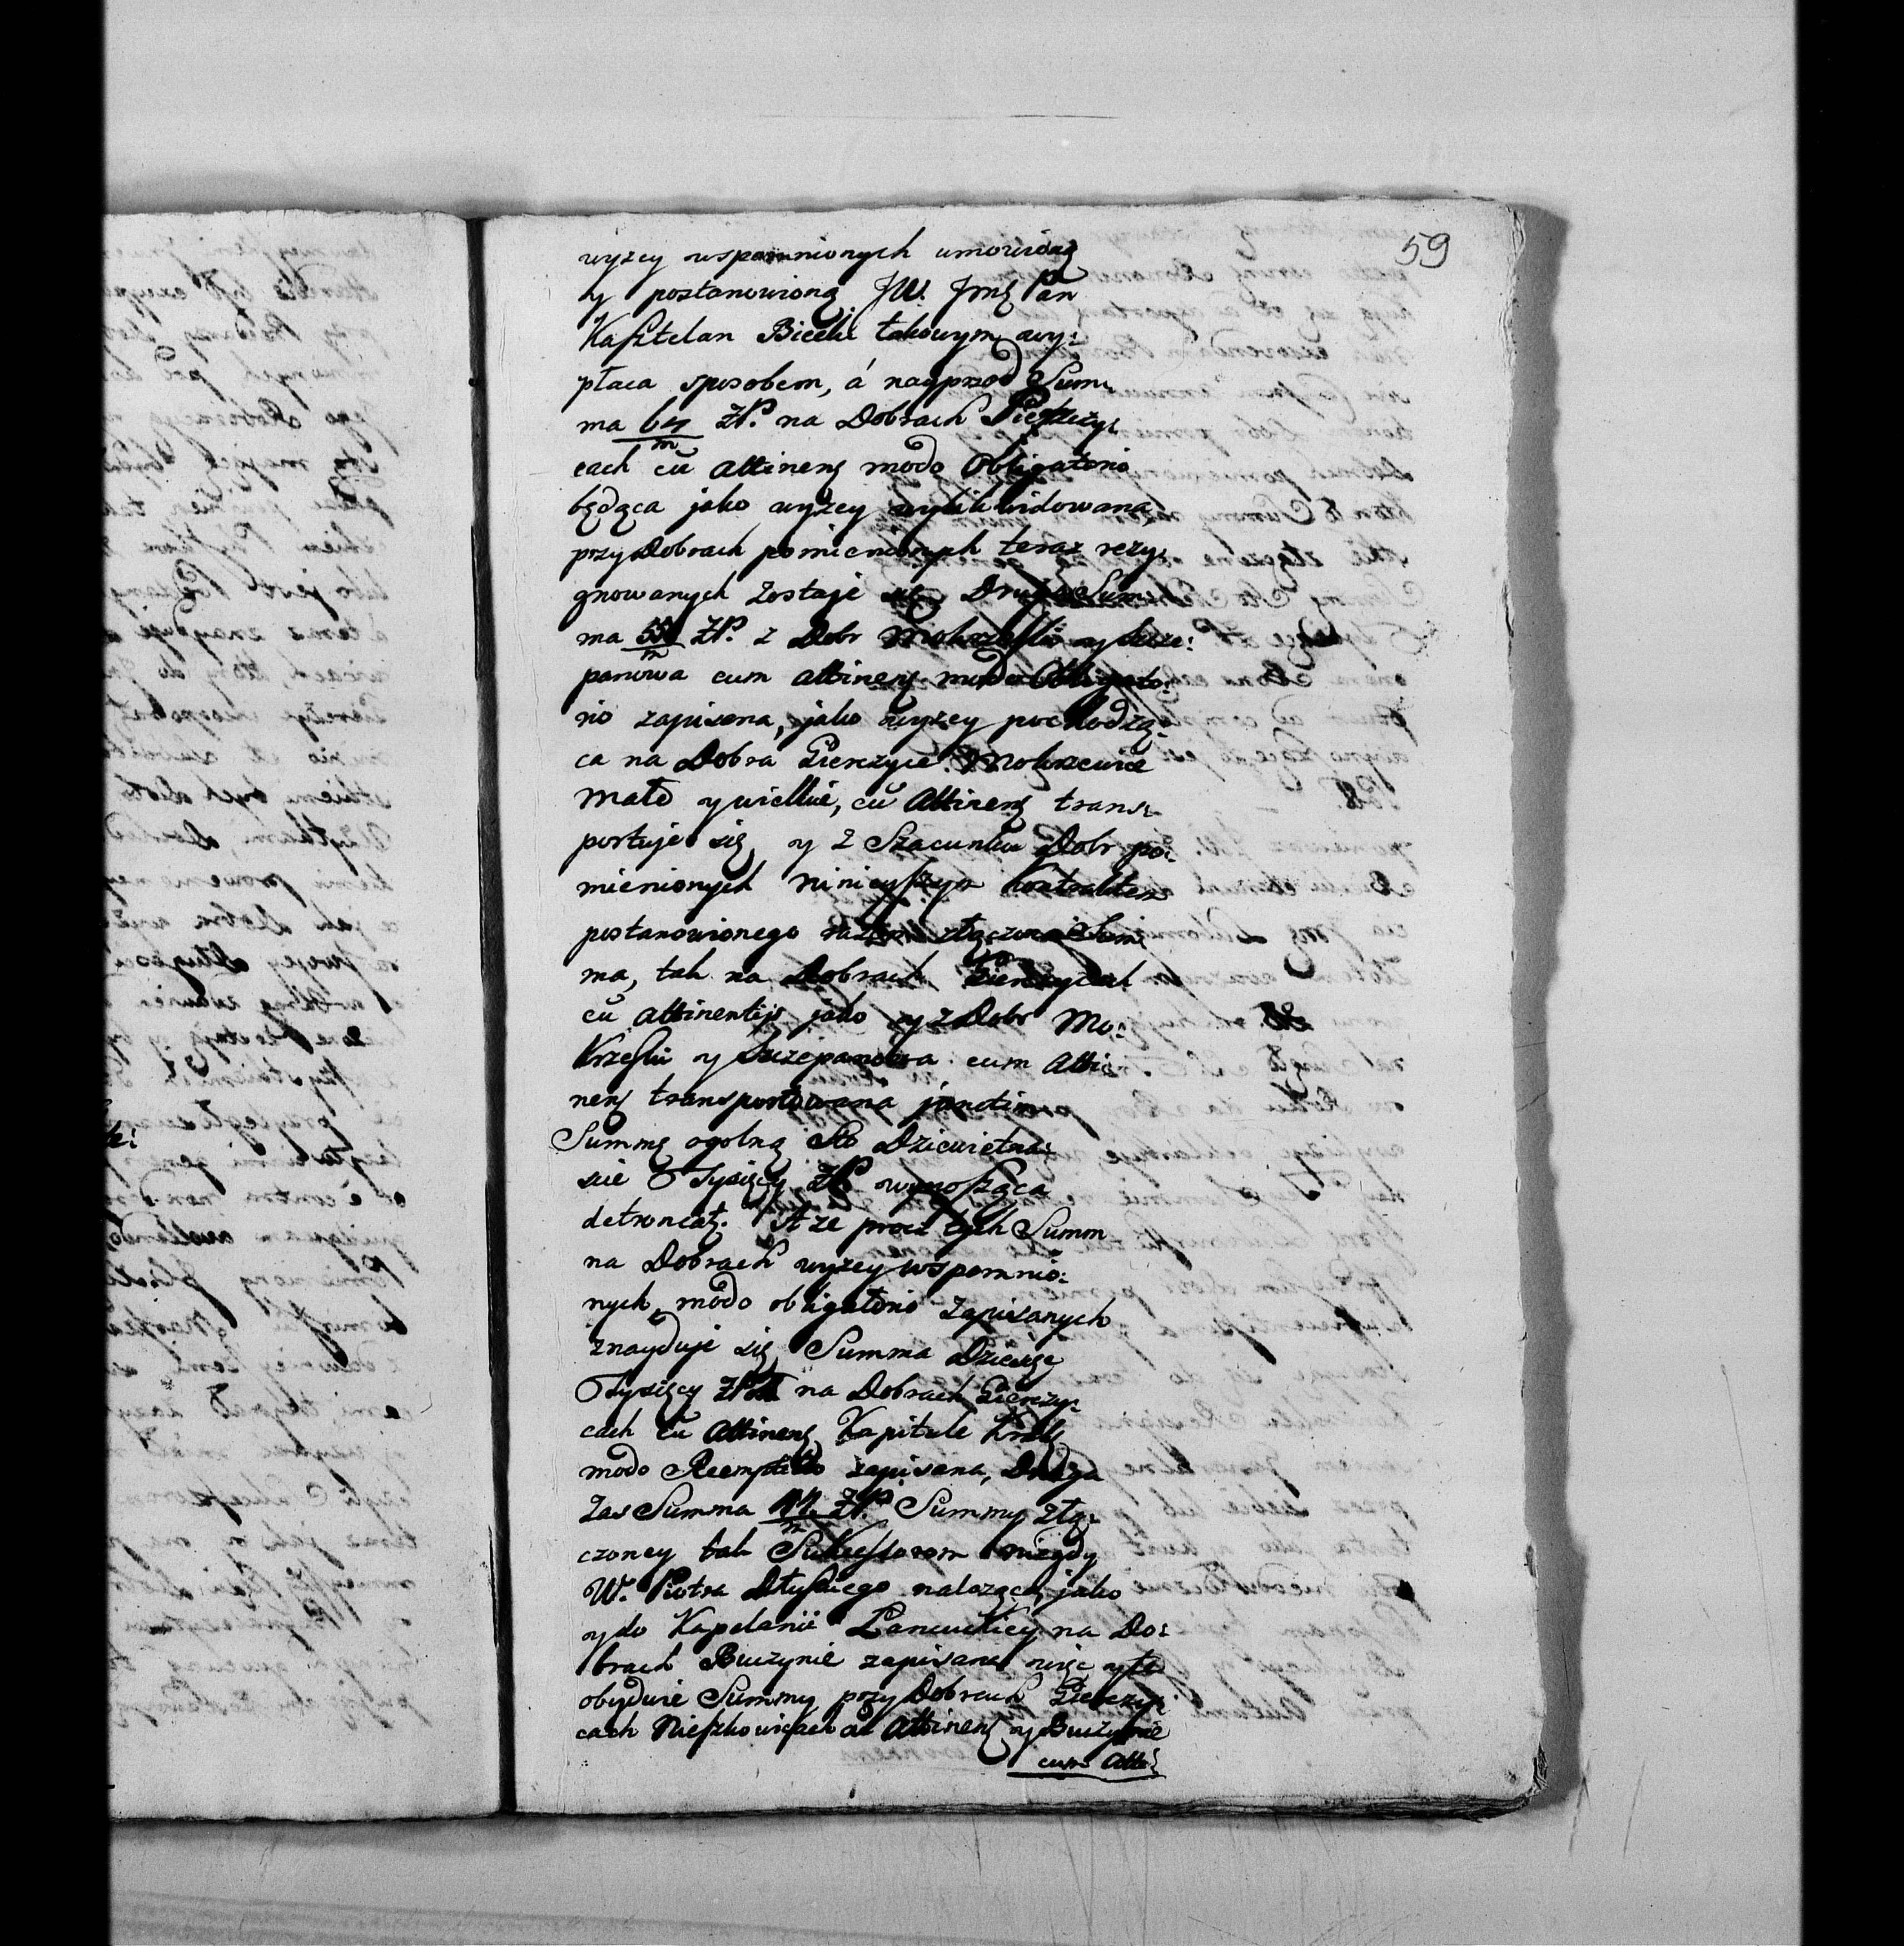 59
wyzey wspomnionych umowioną
y postanowioną JW. Jmę Pan
Kasztelan Biecki takowym wy:
płaca sposobem, á nayprzod Sum:
ma 64/m ZP. na Dobrach Gierczy:
cach cū Attineñ modo Obligatorio
będąca jako wyżey wylikwidowana,
przy Dobrach pomienionych teraz rezy:
gnowanych zostaje się, Druga Sum:
ma 55/m ZP. z Dobr Mokrzeski y Szcze:
panowa cum Attineñ modo Obligato:
rio zapisana, jako wyzey pochodzą:
ca na Dobra Gierczyce Mokrzewie
małe y wielkie, cū Attineñ trans:
portuje się, y z Szacunku Dobr po:
mienionych ninieyszym Kontraktem
postanowionego razem złączona Sum:
ma, tak na Dobrach Gierczycach
cū Attinentijs jako y z Dobr Mo:
krzeski y Szczepanowa cum Atti:
neñ transportowana junctim
Summę ogolną Sto Dziewietna:
scie Tysięcy ZP. wynosząca
detruncat. A ze procz tych Summ
na Dobrach wyzey wspomnio:
nych, modo obligatorio zapisanych
znayduje się Summa Dziesięc
Tysięcy ZP. na Dobrach Gierczy:
cach cū Attineñ Kapitule
modo Reemptitio zapisana, Druga
zas Summa ZP. Summy złą:
czoney tak Sukcessorom niegdy
W. Piotra Dłuskiego nalezącey, jako
y do Kapelanii Lancuckiey na Do:
brach Buczynie zapisana więc y te
obydwie Summy przy Dobrach Gierczy:
cach Nieszkowicach cū Attineñ y Buczynie
cum Atti: